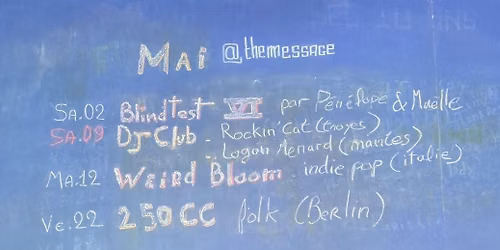 MAI @themessage
SA.02 BlindTest VI par Pénélope & Maelle
SA.09 DJ Club - Rockin'Cat (troyes)
- Logan Menard (mantes)
MA.12 Weird Bloom indie pop (italie)
Ve.22 250CC folk (Berlin)